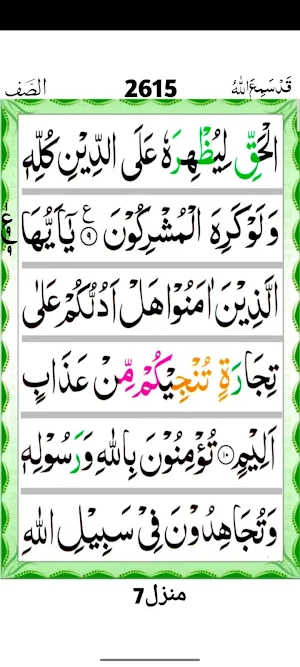 قَدْ سَمِعَ اللّٰهُ 2615 الصَّف
الْحَقِّ لِيُظْهِرَهٗ عَلَى الدِّيْنِ كُلِّهٖ
وَلَوْ كَرِهَ الْمُشْرِكُوْنَ ۹ ع يٰۤاَيُّهَا
الَّذِيْنَ اٰمَنُوْا هَلْ اَدُلُّكُمْ عَلٰى
تِجَارَةٍ تُنْجِيْكُمْ مِّنْ عَذَابٍ
اَلِيْمٍ ۱۰ تُؤْمِنُوْنَ بِاللّٰهِ وَرَسُوْلِهٖ
وَتُجَاهِدُوْنَ فِيْ سَبِيْلِ اللّٰهِ
منزل 7